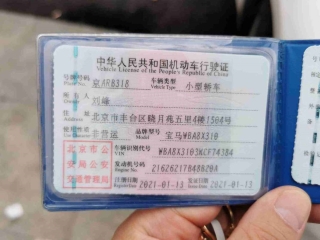 中华人民共和国机动车行驶证
Vehicle License of the People's Republic of China
号牌号码 京ARB318 车辆类型 小型轿车
Plate No. Vehicle Type
所有人 刘峰
住址 北京市丰台区晓月苑五里4幢1504号
使用性质 非营运 品牌型号 宝马WBA8X310
北京市公安局公安交通管理局
车辆识别代号 WBA8X3103WCF74384
VIN
发动机号码 21626217848820A
注册日期 2021-01-13 发证日期 2021-01-13